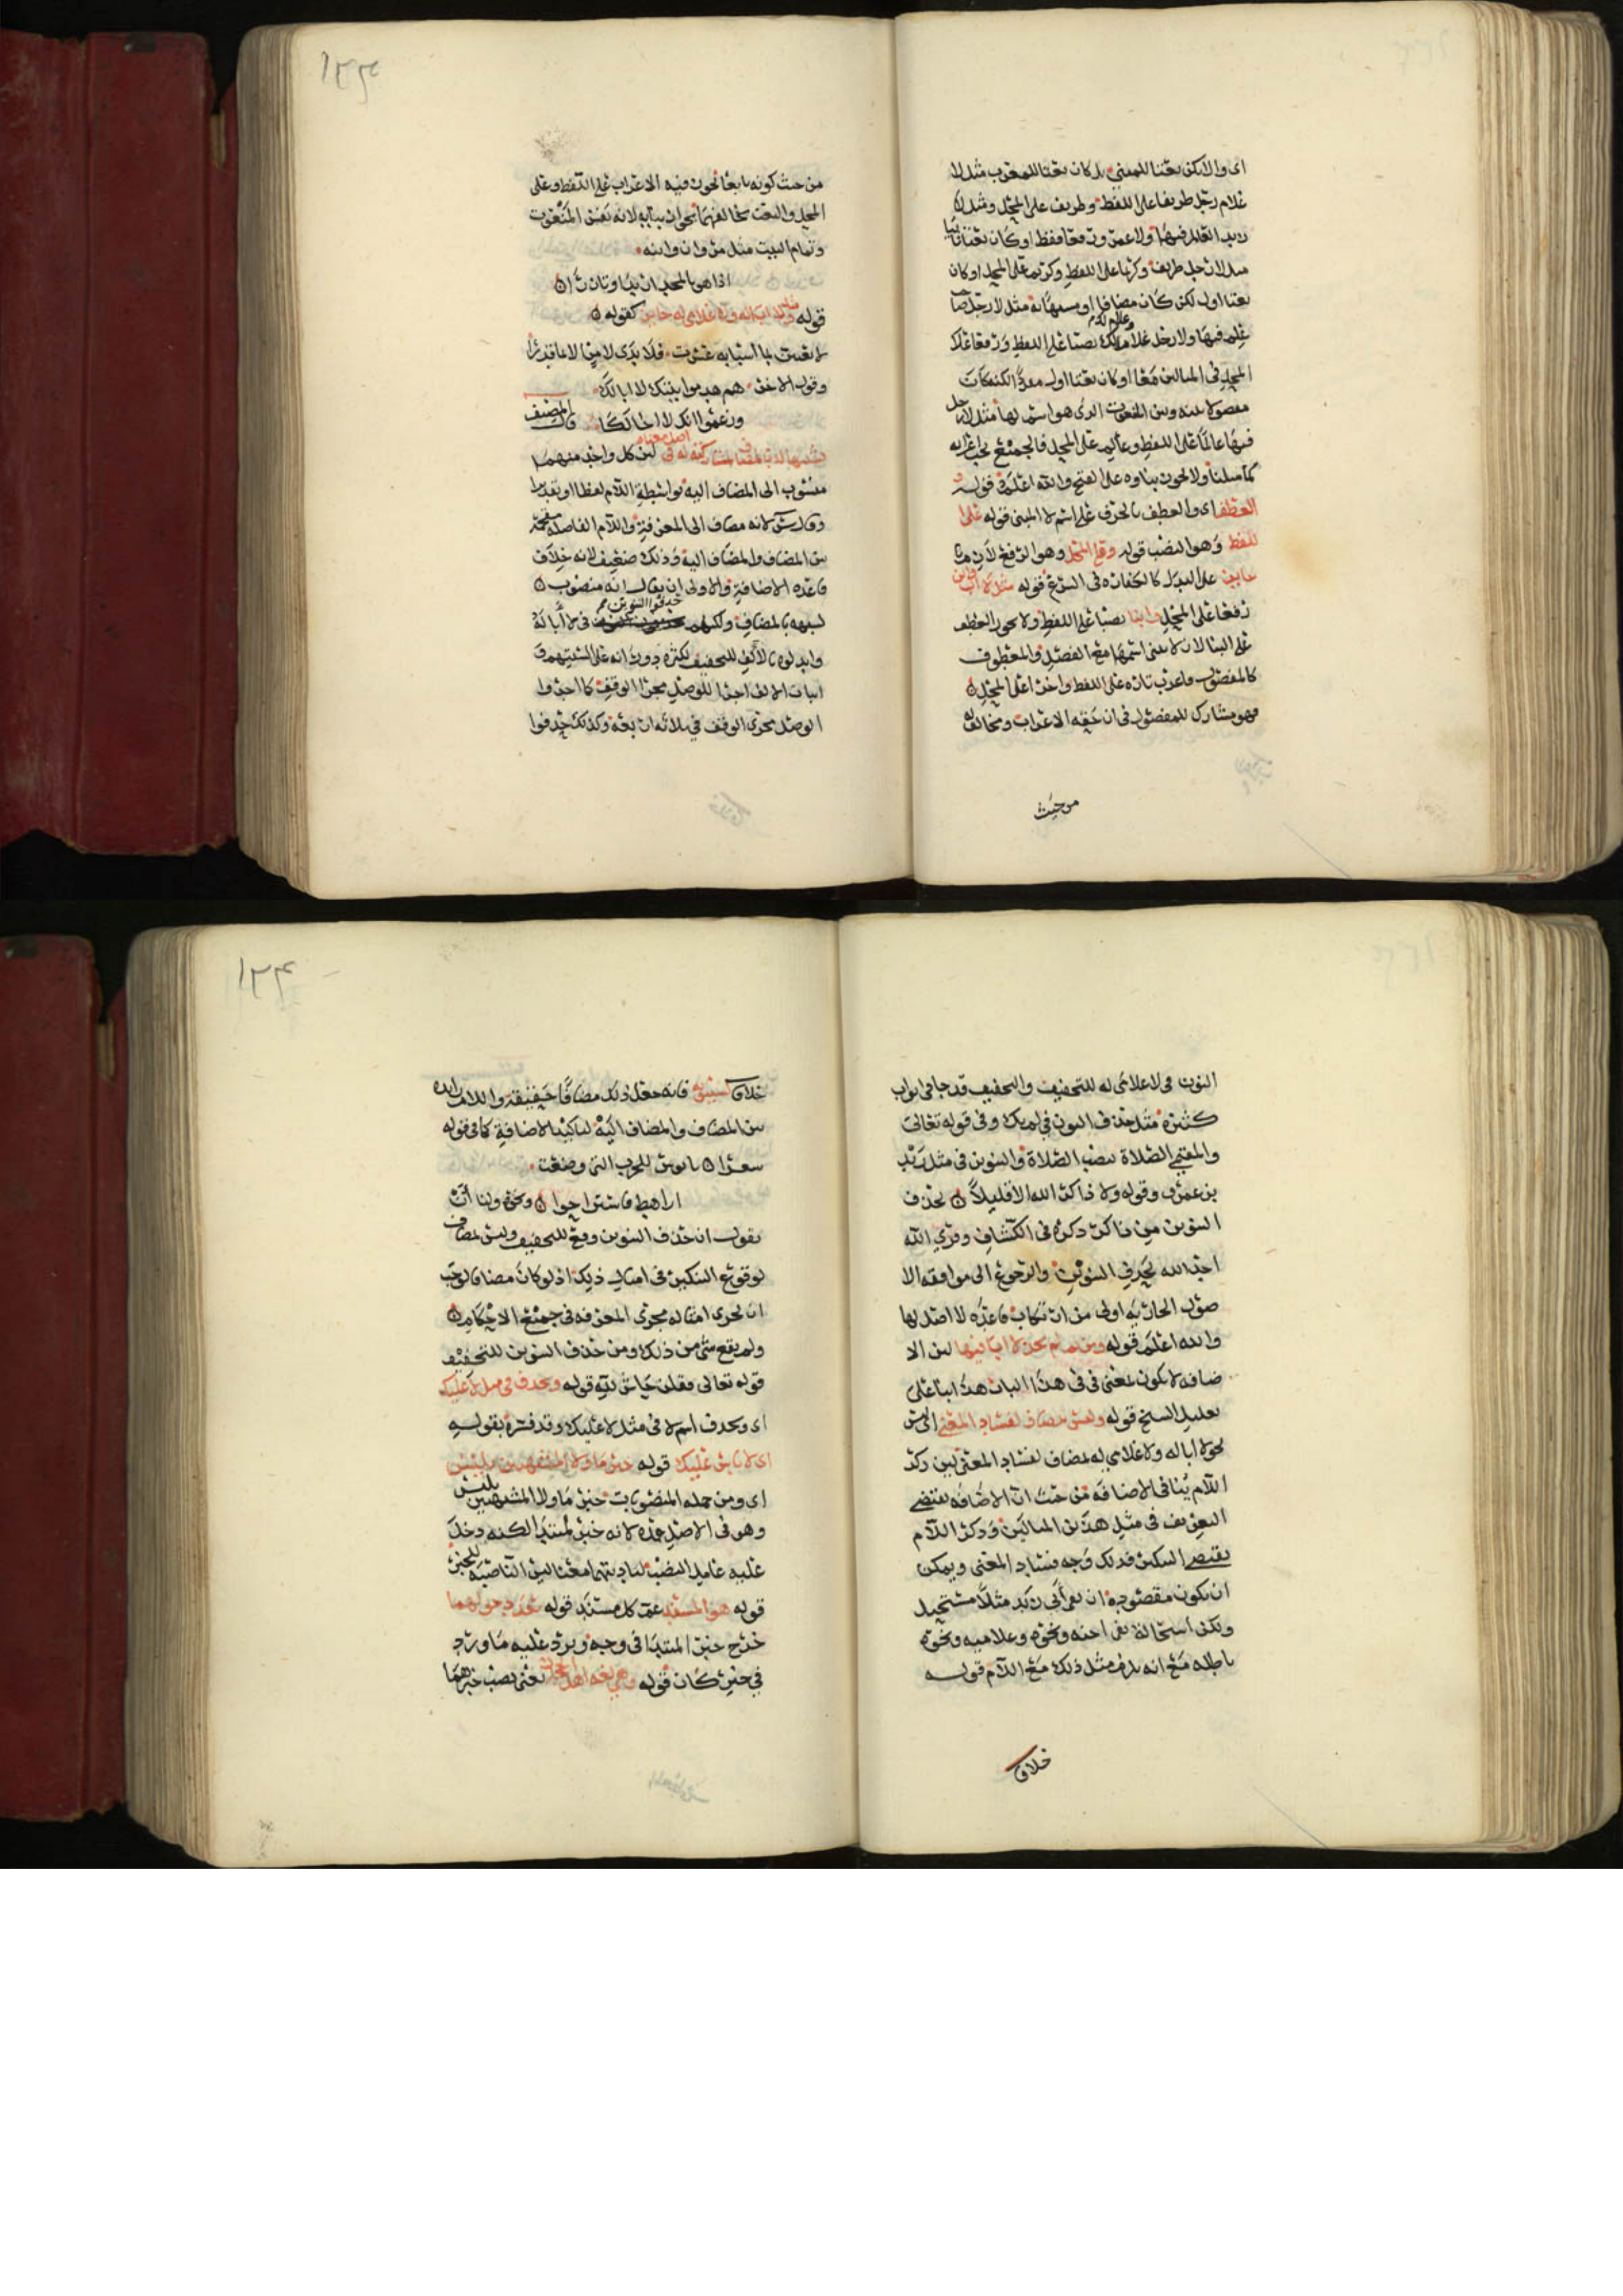 اى والا يكن نعتا للمبنى بل كان نعتا للمعرب مثل لا
غلام رجل ظريفا على اللفظ وظريف على المحل ومثل لا
فيها ولا عمرو رفعا فقط او كان نعتا ثانيا
مثل لا رجل ظريف وكريما على اللفظ وكريم على المحل او كان
نعتا اولا لكن كان مضافا او مشبها به مثل لا رجل صاحب
علم فيها ولا رجل غلام نصبا على اللفظ ورفعا على
المحل فى المثالين معا او كان نعتا اولا مفردا لكنه كان
مفصولا بينه وبين المنعوت الذى هو اسم لها مثل لا رجل
فيها عالما على اللفظ وعالم على المحل فالجميع يجب اعرابه
كما مثلنا ولا يجوز بناوه على الفتح والله اعلم قوله
العطف اى والعطف بالحرف على اسم لا المبنى قوله على
اللفظ وهو النصب قوله وعلى المحل وهو الرفع لان
على المبتدا فى قوله مثل لا اب وابن
رفعا على المحل وابنا نصبا على اللفظ ولا يجوز العطف
على البنا لان لا يبنى اسمها مع الفصل والمعطوف
كالمفصول فاعرب تارة على اللفظ واخرى على المحل
فهو مشارك للمفصول فى ان حقه الاعراب ومخالف له
من حيث
١٣٣
من حيث كونه تابعا تجوز فيه الاعراب على اللفظ وعلى
المحل والنعت يخالفهما بجواز بنايه لانه نفس المنعوت
وتمام البيت مثل مروان وابنه
اذا هو بالمجد ارتدى وتازرا
قوله ومثل لا ابا له ولا غلامى له جايز كقوله
وقول الاخر هم هدموا بيتك لا ابا لك
وزعموا انك لا اخا لكا قال المصنف
تشبيها له بالمضاف لمشاركته له فى اصل معناه لان كل واحد منهما
منسوب الى المضاف اليه بواسطة اللام لفظا او تقديرا
وقال س لانه مضاف الى المعرفة واللام الفاصلة مقحمة
بين المضاف والمضاف اليه وذلك ضعيف لانه خلاف
قاعدة الاضافة والاولى ان يقال انه منصوب
لشبهه بالمضاف ولكنهم حذفوا التنوين من فى لا ابا له
وابدلوه بالالف للتخفيف لكثرة دورانه على السنتهم و
اثبات الالف اجرا للوصل مجرى الوقف كما اجروا
الوصل مجرى الوقف فى ثلاثه اربعه وكذلك حذفوا
النون فى لا غلامى له للتخفيف والتخفيف قد جا فى ابواب
كثيرة مثل حذف النون فى لم يك وفى قوله تعالى
والمقيمى الصلاة بنصب الصلاة والتنوين فى مثل زيد
بن عمرو وقوله ولا ذاكر الله الا قليلا بحذف
التنوين من ذاكر ذكره فى الكشاف وقرى الله
احد الله بحذف التنوين والرجوع الى موافقه الا
صول الجاريه اولى من ارتكاب قاعدة لا اصل لها
والله اعلم قوله ومن ثم لم يجز لا ابا فيها لان الا
ضافه لا تكون بمعنى فى فى هذا الباب هذا بنا على
تعليل الشيخ قوله وليس بمضاف لفساد المعنى اى ليس
نحو لا ابا له ولا غلامى له بمضاف لفساد المعنى لان ذكر
اللام ينافى الاضافه من حيث ان الاضافه يقتضى
التعريف فى مثل هذين المثالين وذكر اللام
يقتضى التنكير فذلك وجه فساد المعنى ويمكن
ان يكون مقصوده ان نفى ابى زيد مثلا مستحيل
ولكن استحالة نفى اخيه ونحوه وغلاميه ونحوه
باطله مع انه يلزم مثل ذلك مع اللام قوله
خلافا
١٣٤
خلافا لسيبويه فانه جعل ذلك مضافا حقيقة واللام زايده
بين المضاف والمضاف اليه لتاكيد الاضافة كما فى قوله
شعرا يا بوس للحرب التى وضعت
اراهط فاستراحوا ونحوه ولنا ان
نقول ان حذف التنوين وقع للتخفيف وليس بمضاف
لوقوع التنكير فى امثال ذلك اذ لو كان مضافا لوجب
ان يجرى امثاله مجرى المعرفه فى جميع الاحكام
ولم يقع شى من ذلك ومن حذف التنوين للتخفيف
قوله تعالى وقلن حاش لله قوله ويحذف فى مثل لا عليك
اى ويحذف اسم لا فى مثل لا عليك وقد فسره بقوله
اى لا باس عليك قوله خبر ما ولا المشبهتين بليس
اى ومن جمله المنصوبات خبر ما ولا المشبهتين بليس
وهو فى الاصل عمده لانه خبر المبتدا لكنه دخل
عليه عامل النصب لتاديتهما معنا ليس الناصبة للخبر
قوله هو المسند عم كل مسند قوله بعد دخولهما
خرج خبر المبتدا فى وجه ويرد عليه ما ورد
فى خبر كان قوله وهى لغه اهل الحجاز يعنى نصب خبرهما